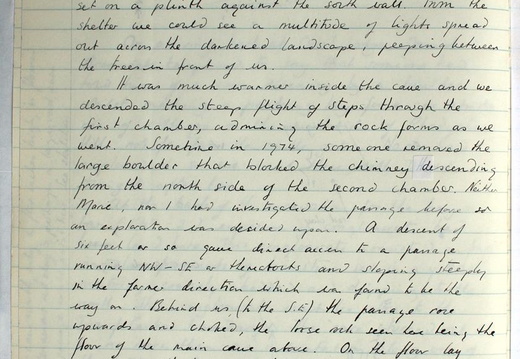 set on a plinth against the south wall. From the
shelter we could see a multitude of lights spread
out across the darkened landscape, peeping between
the trees in front of us.
It was much warmer inside the cave and we
descended the steep flight of steps through the
first chamber, admiring the rock forms as we
went. Sometime in 1974, someone removed the
large boulder that blocked the chimney descending
from the north side of the second chamber. Neither
Marc, nor I had investigated the passage before so
an exploration was decided upon. A descent of
six feet or so gave direct access to a passage
running NW-SE or thereabouts and sloping steeply
in the former direction which was found to be the
way on. Behind us (to the SE) the passage rose
upwards and choked, the loose rock seen here being the
floor of the main cave above. On the floor lay